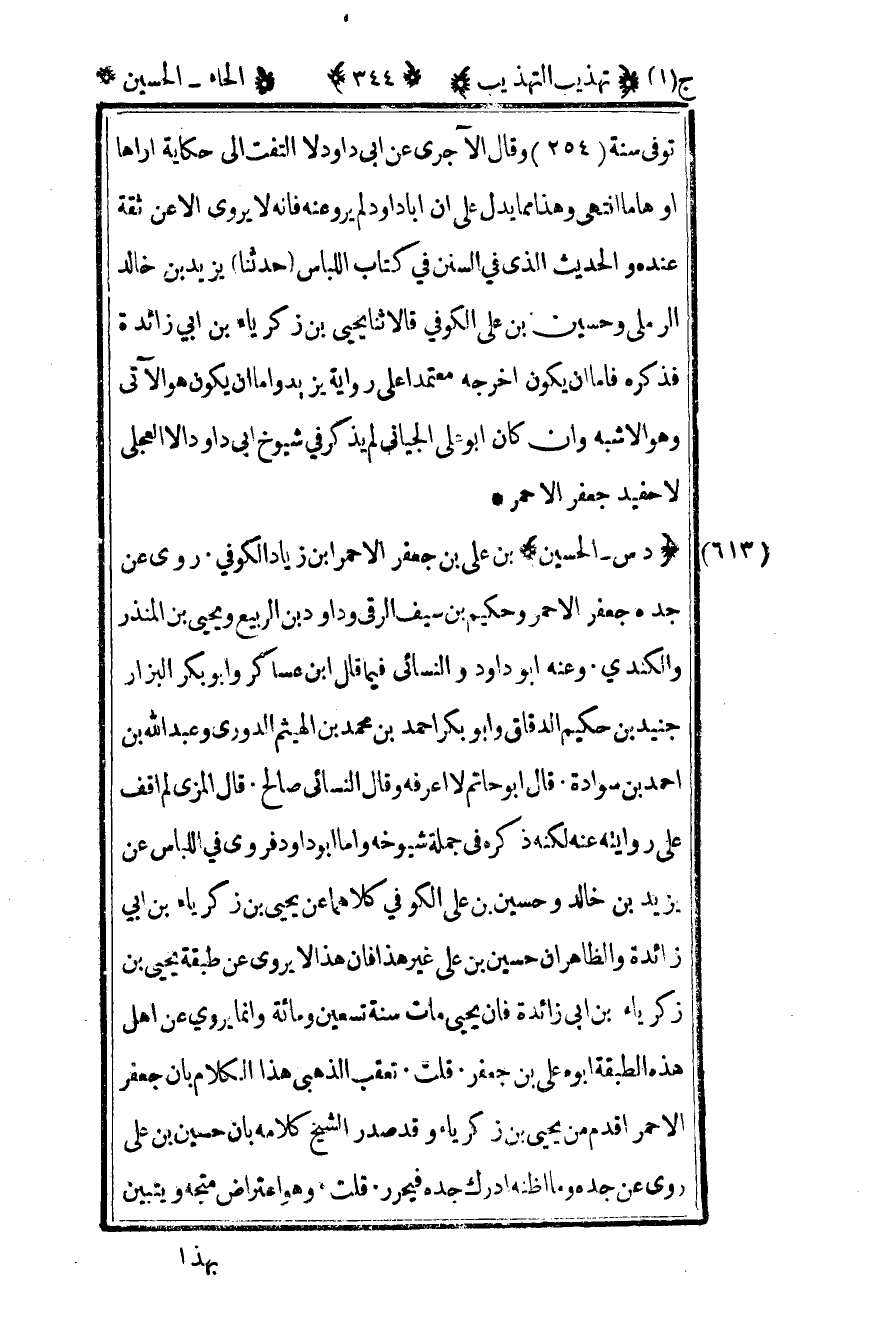 ج(١) ﴿ تهذيب التهذيب ﴾ ﴿ ٣٤٤ ﴾ ﴿ الحاء ـ الحسين ﴾
توفى سنة ( ٢٥٤ ) وقال الآجرى عن ابى داود لا التفت الى حكاية اراها
اوهاما انتهى وهذا مما يدل على ان اباداود لم يرو عنه فانه لا يروى الا عن ثقة
عنده و الحديث الذى في السنن في كتاب اللباس (حدثنا) يزيد بن خالد
الرملى وحسين بن على الكوفي قالا ثنا يحيى بن زكرياء بن ابي زائدة
فذكره فاما ان يكون اخرجه معتمدا على رواية يزيد واما ان يكون هو الآتى
وهو الاشبه وان كان ابو على الجياني لم يذكر في شيوخ ابى داود الا العجلى
لا حفيد جعفر الاحمر *
(٦١٣) ﴿ د س ـ الحسين ﴾ بن على بن جعفر الاحمر ابن زياد الكوفي · روى عن
جده جعفر الاحمر وحكيم بن سيف الرقى وداود بن الربيع ويحيى بن المنذر
والكندي · وعنه ابو داود و النسائى فيما قال ابن عساكر وابو بكر البزار
جنيد بن حكيم الدقاق وابو بكر احمد بن محمد بن الهيثم الدورى وعبدالله بن
احمد بن سوادة · قال ابو حاتم لا اعرفه وقال النسائى صالح · قال المزى لم اقف
على روايته عنه لكنه ذكره فى جملة شيوخه واما ابو داود فروى في اللباس عن
يزيد بن خالد وحسين بن على الكوفي كلاهما عن يحيى بن زكرياء بن ابي
زائدة والظاهر ان حسين بن على غير هذا فان هذا لا يروى عن طبقة يحيى بن
زكرياء بن ابى زائدة فان يحيى مات سنة تسعين ومائة وانما يروي عن اهل
هذه الطبقة ابوه على بن جعفر · قلت · تعقب الذهبى هذا الكلام بان جعفر
الاحمر اقدم من يحيى بن زكرياء و قد صدر الشيخ كلامه بان حسين بن على
روى عن جده وما اظنه ادرك جده فيحرر · قلت · وهو اعتراض متجه ويتبين
بهذا